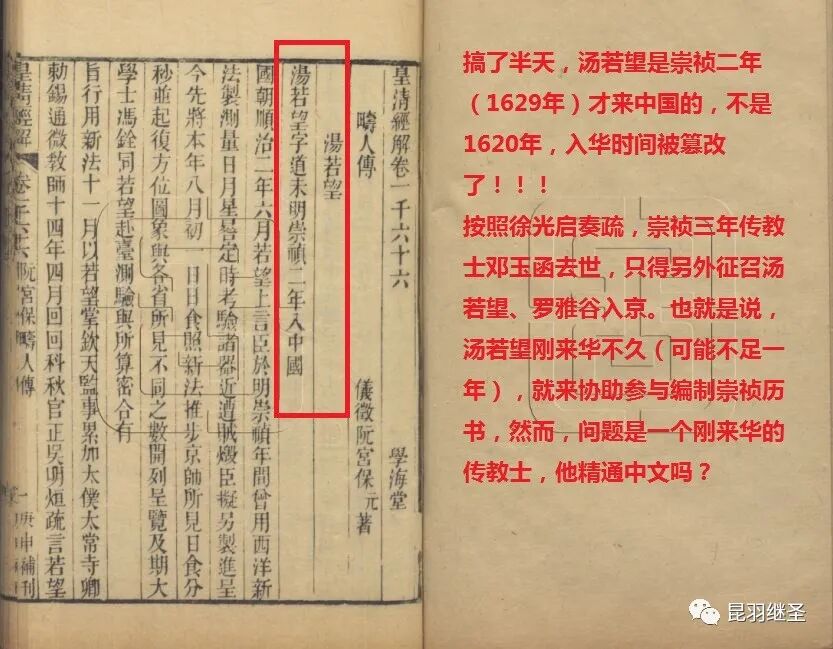 皇清經解卷一千六十六 學海堂
疇人傳 儀徵阮宮保元著
湯若望
湯若望字道未明崇禎二年入中國
國朝順治二年六月若望上言臣於明崇禎年間曾用西洋新
法製測量日月星晷定時考驗諸器近遭賊燬臣擬另製進呈
今先將本年八月初一日日食照新法推步京師所見日食分
秒並起復方位圖象與各省所見不同之數開列呈覽及期大
學士馮銓同若望赴臺測驗與所算密合有
旨行用新法十一月以若望掌欽天監事累加太僕太常寺卿
勅錫通微教師十四年四月回回科秋官正吳明烜疏言若望
皇清經解 阮宮保疇人傳 一 庚申補刊
搞了半天，汤若望是崇祯二年
（1629年）才来中国的，不是
1620年，入华时间被篡改
了！！！
按照徐光启奏疏，崇祯三年传教
士邓玉函去世，只得另外征召汤
若望、罗雅谷入京。也就是说，
汤若望刚来华不久（可能不足一
年），就来协助参与编制崇祯历
书，然而，问题是一个刚来华的
传教士，他精通中文吗？
昆羽继圣